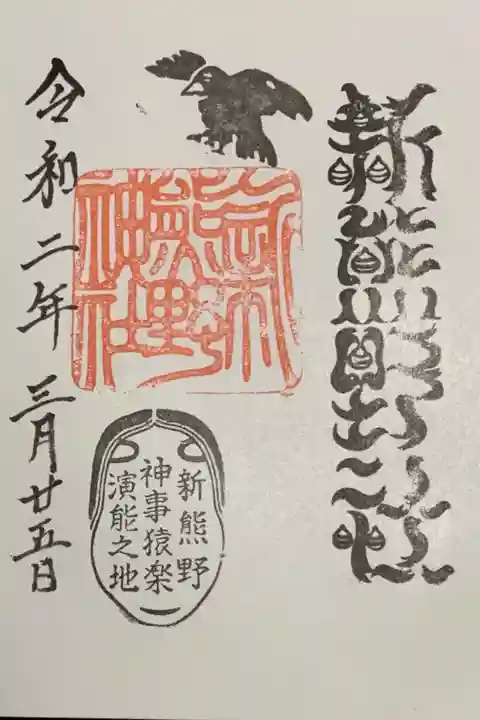 新熊野
新
熊野
神社
新熊野
神事猿楽
演能之地
令和二年三月廿五日